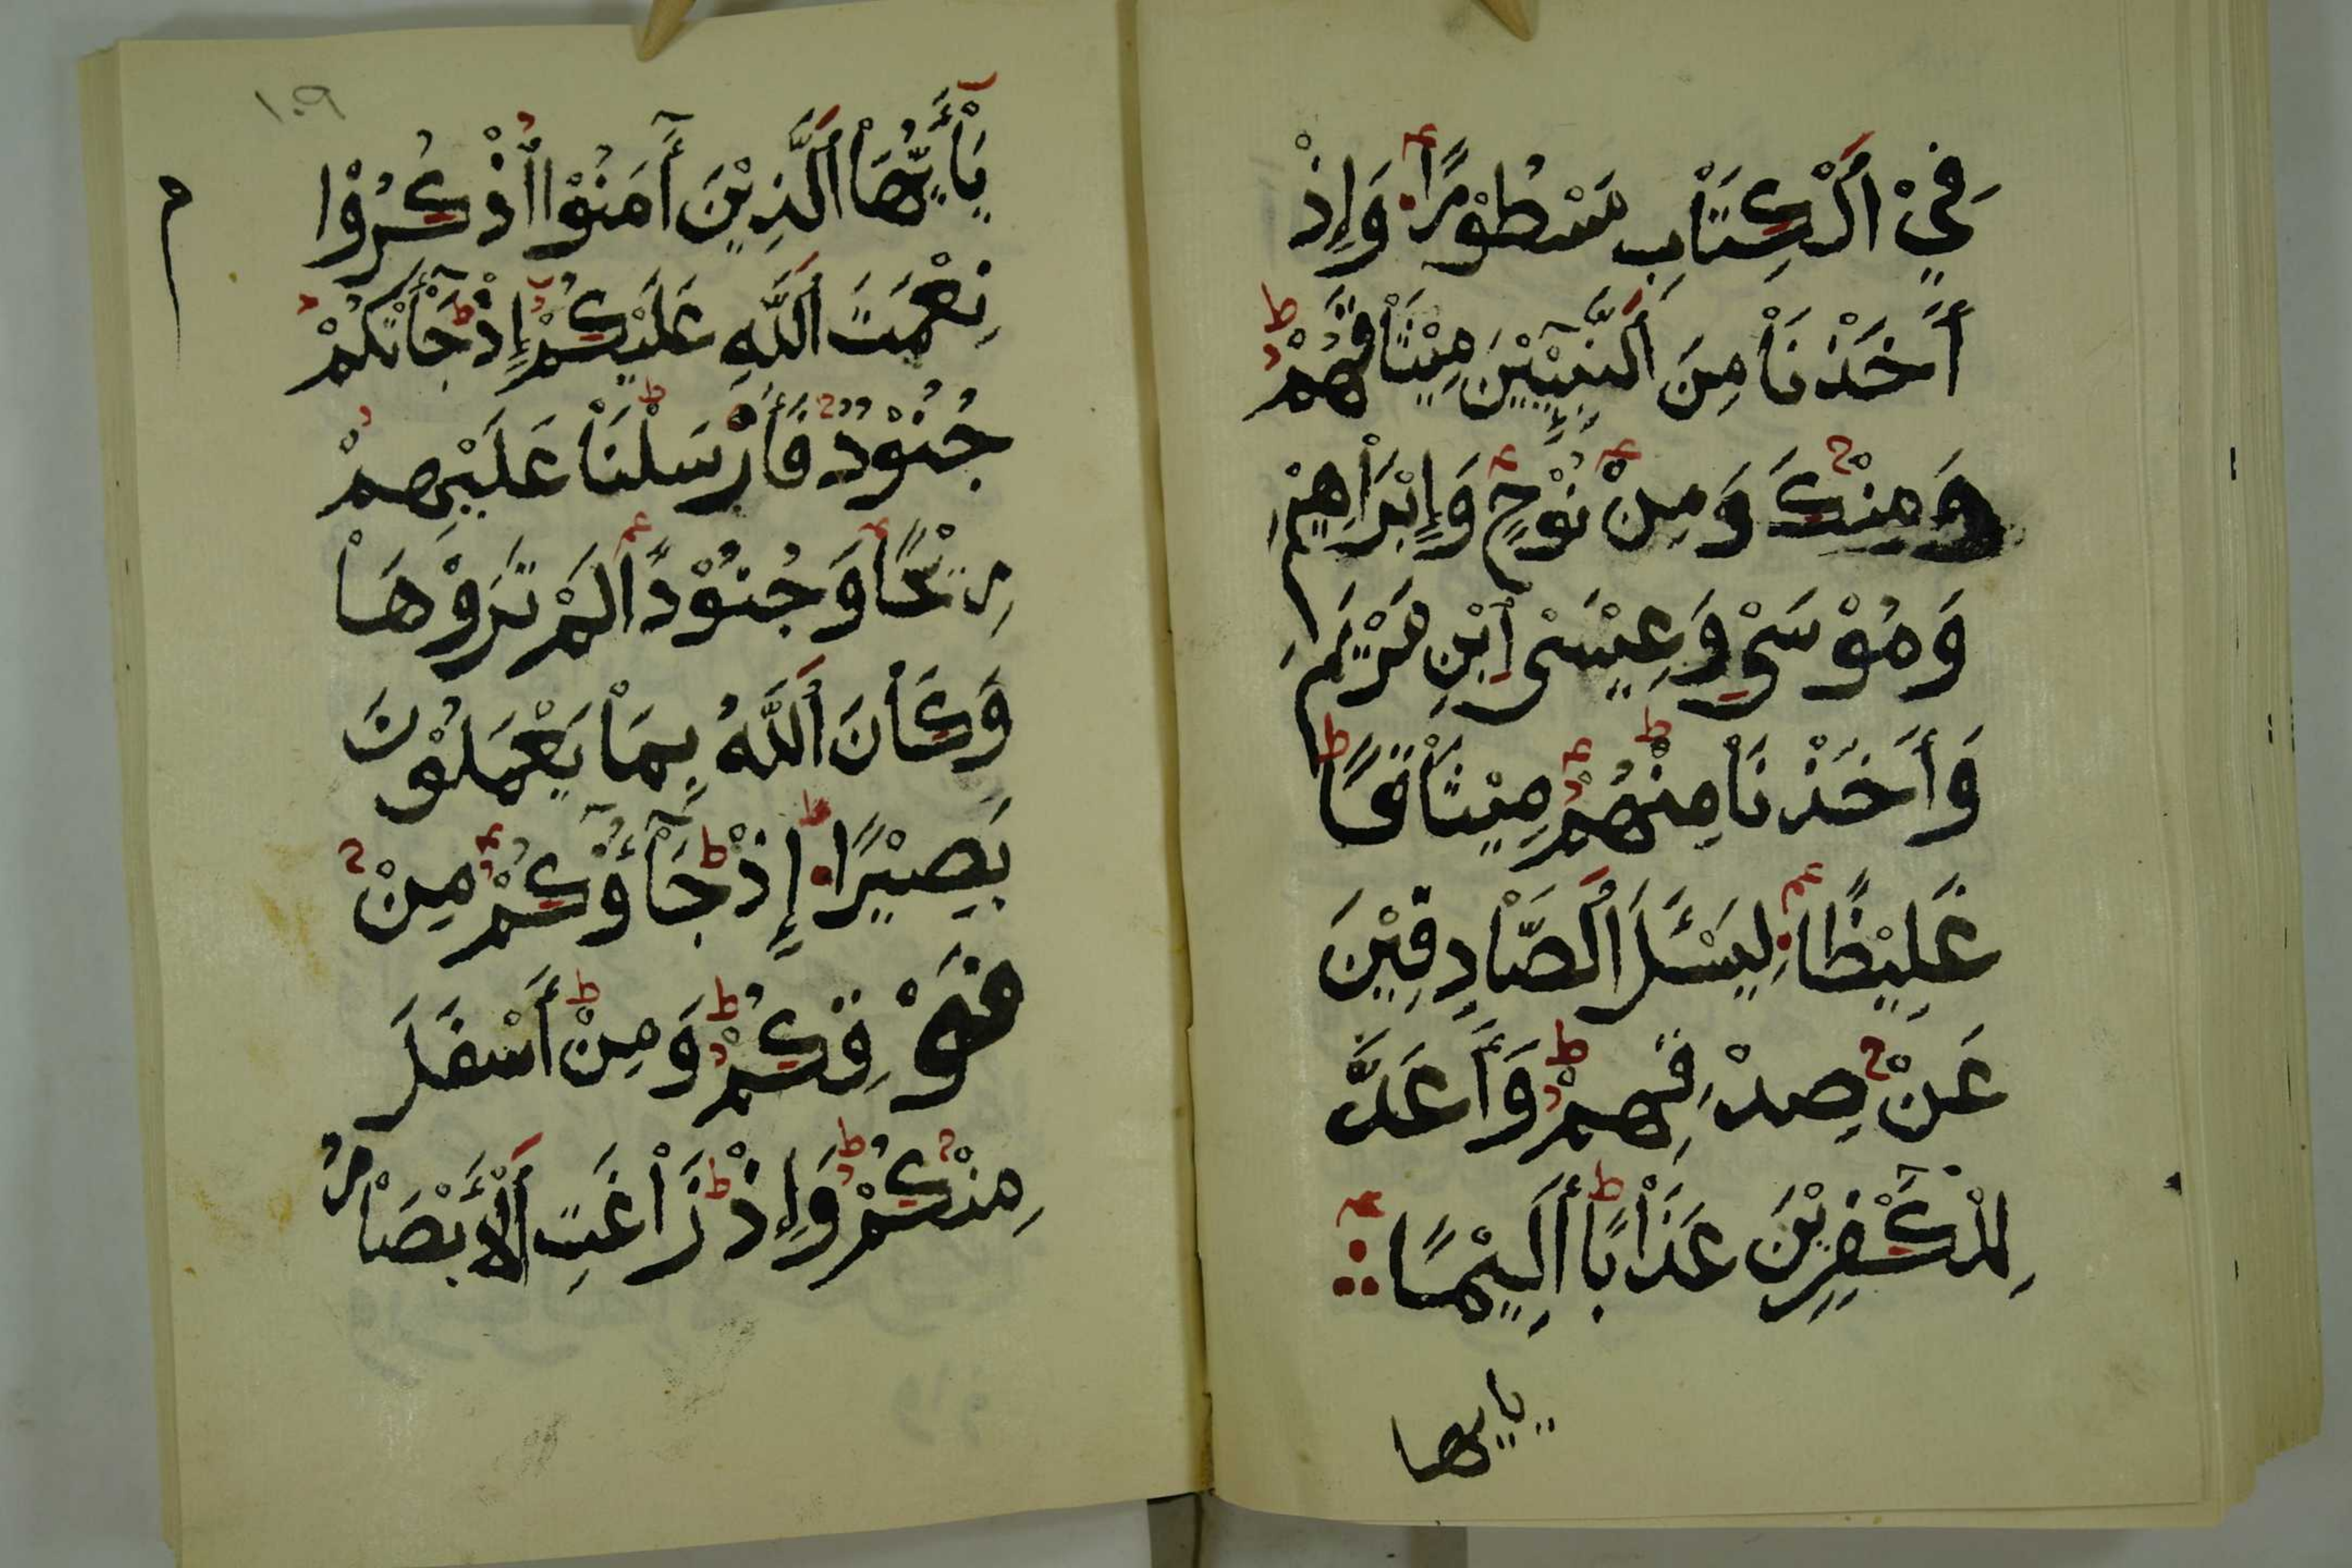 فِيْ اَلْكِتَاْبِ مَسْطُوْرًا وَإِذْ
أَخَذْنَاْ مِنَ اَلنَّبِيّٖيْنَ مِيْثَاْقَهُمْ
وَمِنْكَ وَمِنْ نُوْحٍ وَإِبْرَاْهِيْمَ
وَمُوْسَىْ وَعِيْسَى اِبْنِ مَرْيَمَ
وَأَخَذْنَاْ مِنْهُمْ مِيْثَاْقًا
غَلِيْظًا لِيَسْـَٔلَ اَلصَّاْدِقِيْنَ
عَنْ صِدْقِهِمْ وَأَعَدَّ
لِلْكَٰفِرِيْنَ عَذَاْبًا أَلِيْمًا
يايها
يَاْأَيُّهَاْ اَلَّذِيْنَ آمَنُوْا اُذْكُرُوْا
نِعْمَتَ اَللَّهِ عَلَيْكُمْ إِذْ جَاْءَتْكُمْ
جُنُوْدٌ فَأَرْسَلْنَاْ عَلَيْهِمْ
رِيْحًا وَجُنُوْدًا لَمْ تَرَوْهَاْ
وَكَاْنَ اَللَّهُ بِمَاْ يَعْمَلُوْنَ
بَصِيْرًا إِذْ جَآؤُوْكُمْ مِنْ
فَوْقِكُمْ وَمِنْ أَسْفَلَ
مِنْكُمْ وَإِذْ زَاْغَتِ اَلْأَبْصَاْرُ